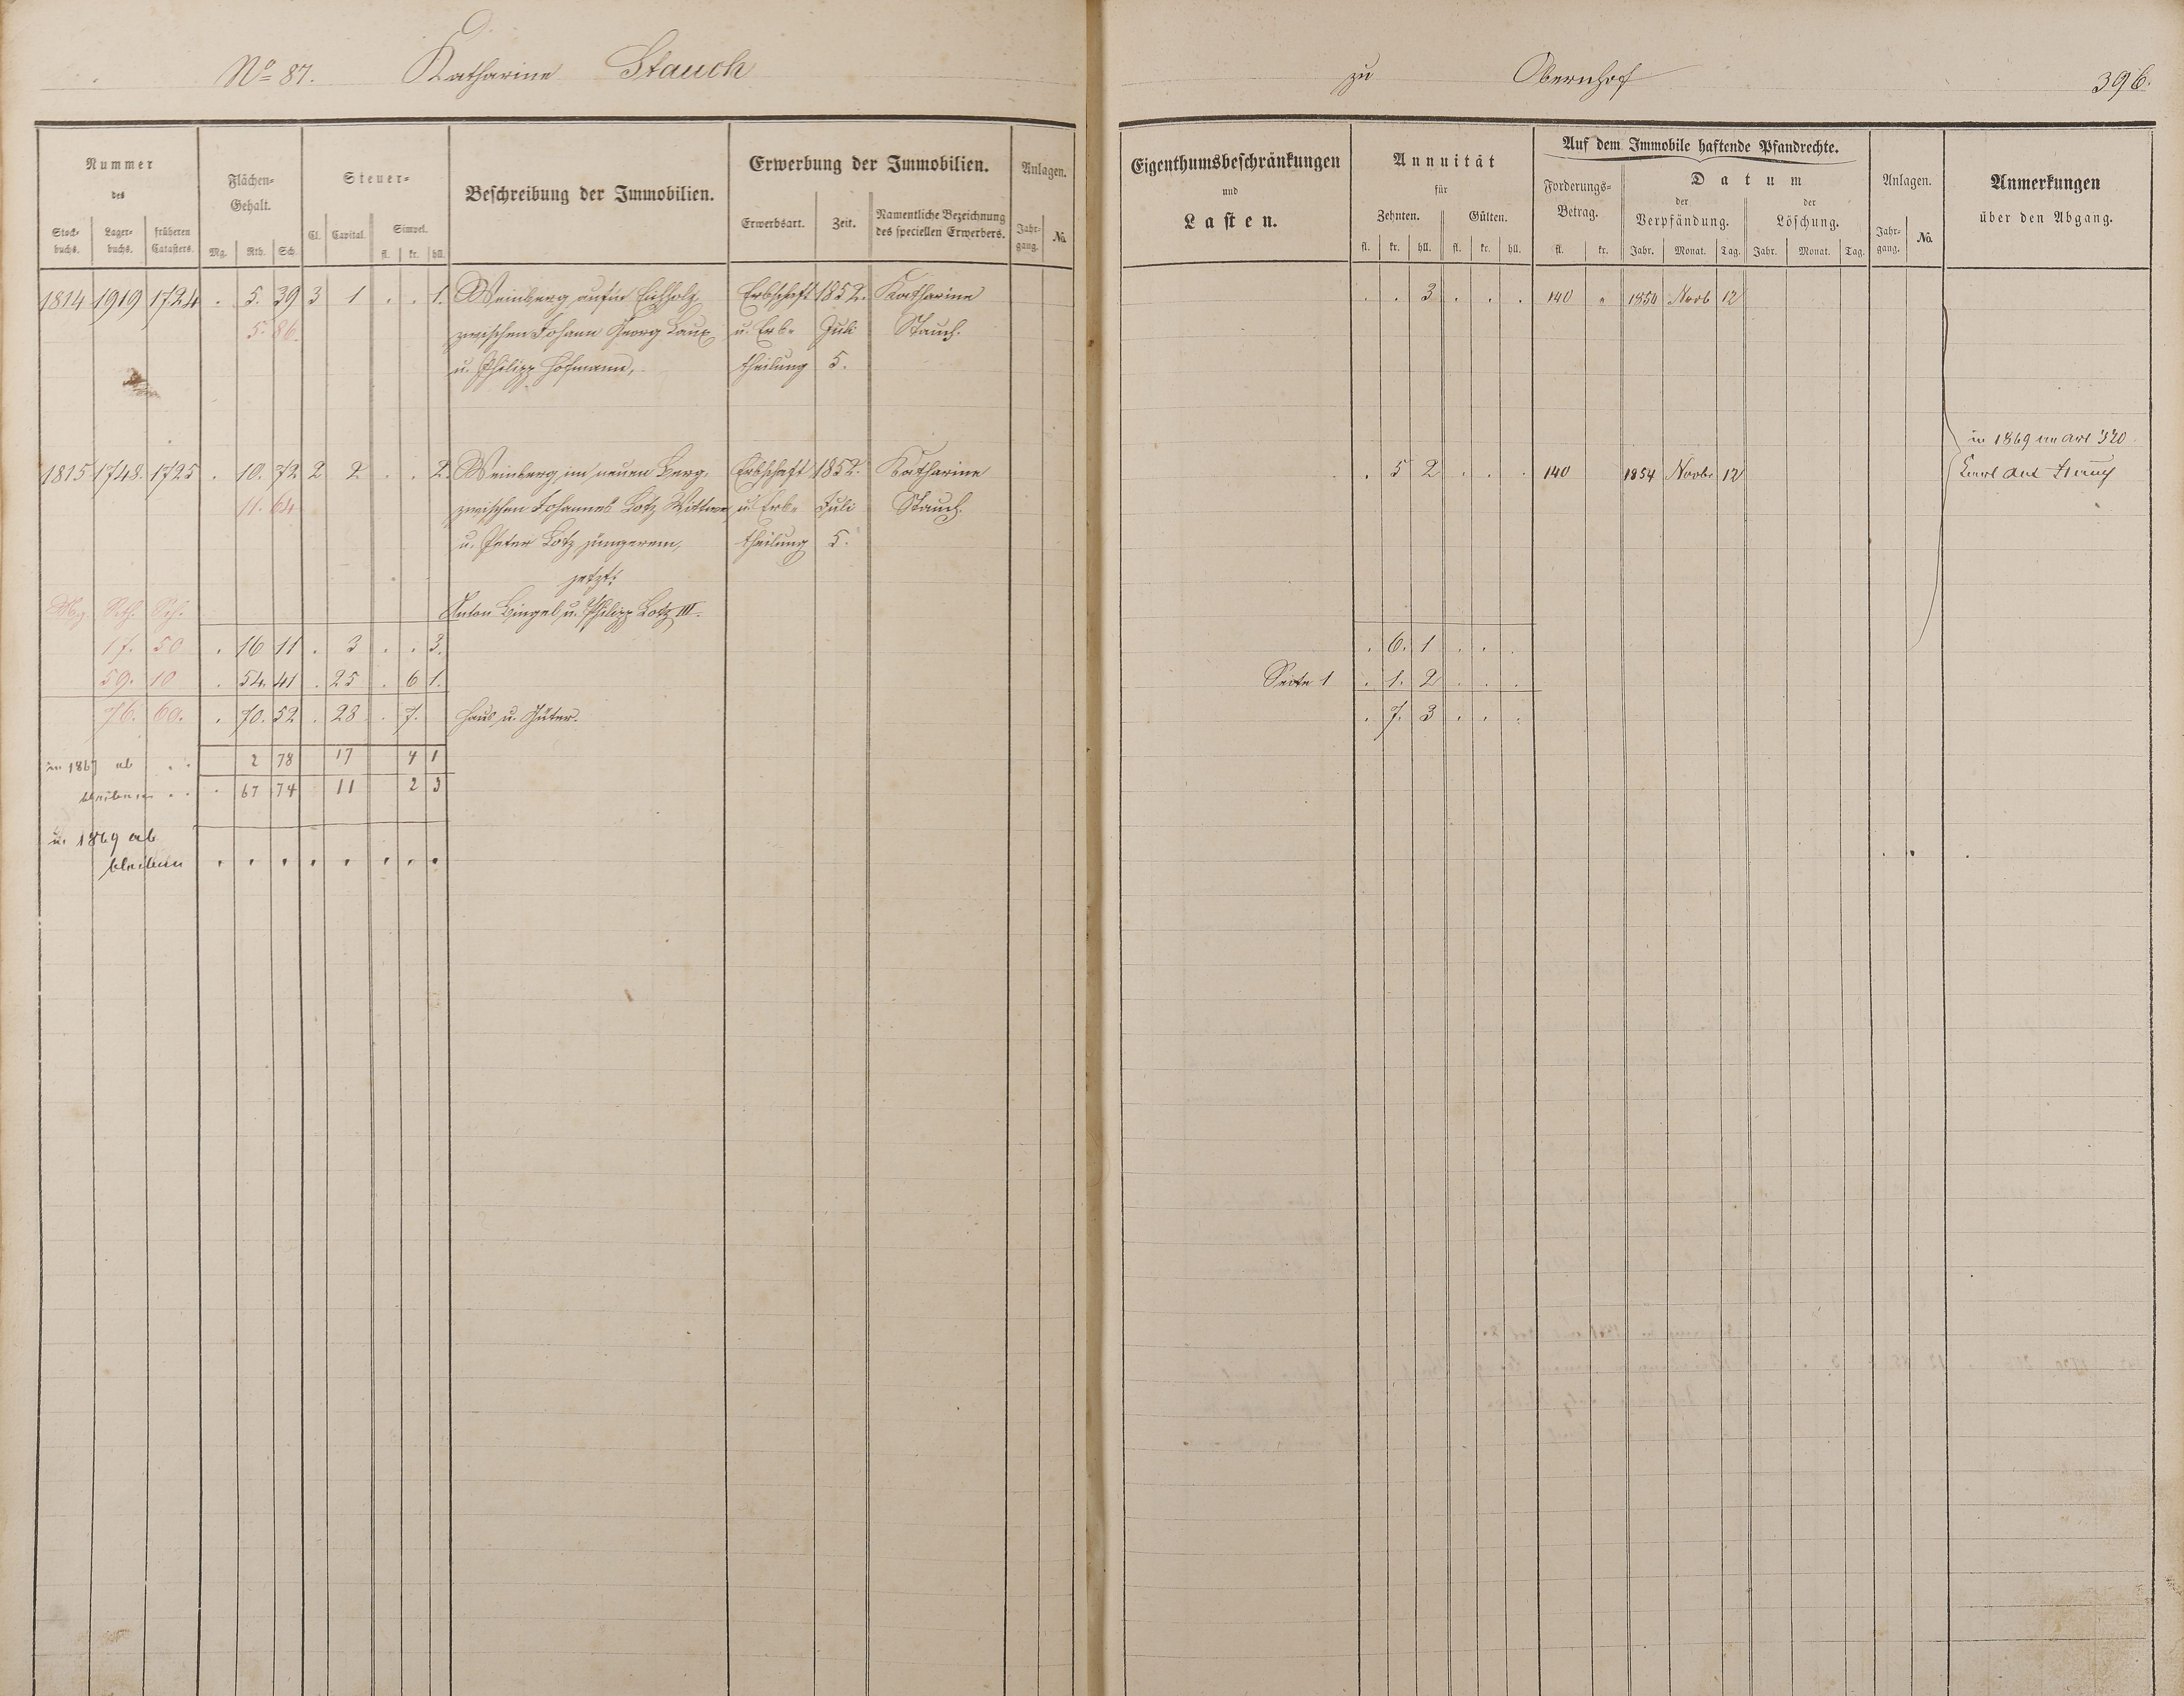 No 87. Katharine Stauch
zu Obernhof 396.
Nummer des
Stockbuchs. Lagerbuchs. früheren Catasters.
Flächen-Gehalt.
Mg. Rth. Sch.
Steuer-
Cl. Capital. Simpel.
fl. kr. hll.
Beschreibung der Immobilien.
Erwerbung der Immobilien.
Erwerbsart. Zeit. Namentliche Bezeichnung des speciellen Erwerbers.
Anlagen.
Jahrgang. No.
Eigenthumsbeschränkungen
und
Lasten.
Annuität
für
Zehnten. Gülten.
fl. kr. hll. fl. kr. hll.
Auf dem Immobile haftende Pfandrechte.
Forderungs-Betrag.
fl. kr.
Datum
der Verpfändung. der Löschung.
Jahr. Monat. Tag. Jahr. Monat. Tag.
Anlagen.
Jahrgang. No.
Anmerkungen
über den Abgang.
1814 1919 1724 . 5. 39 3 1 . . 1. Weinberg aufm Eichholz Erbschaft 1852. Katharine . . 3 . . . 140 " 1854 Novb 12
5. 86. zwischen Johann Georg Laux u. Erb- Juli Stauch.
u. Philipp Hofmann, theilung 5.
in 1869 an Art 320
1815 1748. 1725 . 10. 72 2 2 . . 2. Weinberg im neuen Berg, Erbschaft 1852. Katharine . 5 2 . . . 140 1854 Novb. 12
11. 64 zwischen Johannes Lotz Wittwe u. Erb- Juli Stauch.
u. Peter Lotz jüngerem, theilung 5.
jetzt:
Mg. Rth. Sch. Anton Bingel u. Philipp Lotz III.
17. 50 . 16 11 . 3 . . 3. . 6. 1 . . .
59. 10 . 54. 41 . 25 . 6 1. Seite 1 . 1. 2 . . .
76. 60. . 70. 52 . 28 . 7. Haus u. Güter. . 7. 3 . . .
in 1867 ab . . 2 78 17 4 1
bleiben . . . 67 74 11 2 3
in 1869 ab
bleiben . . . . . . . .